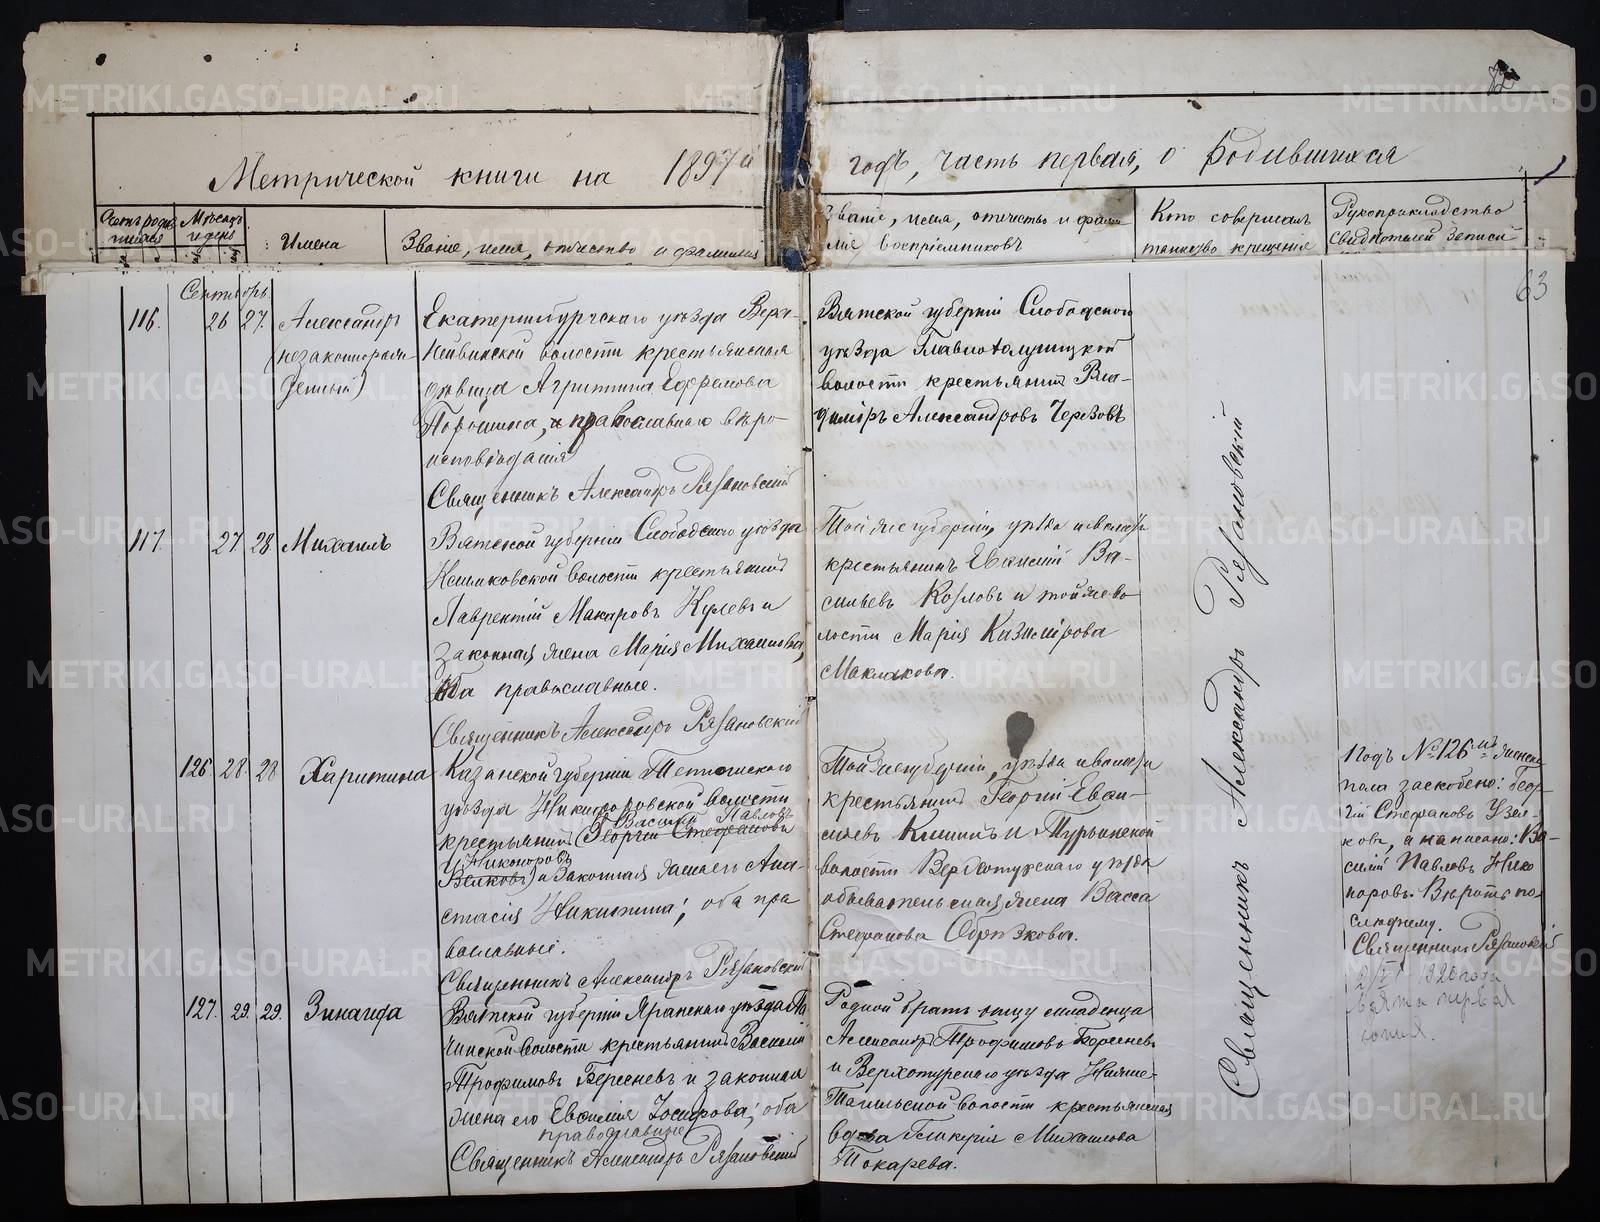 Метрической книги на 1897й
годъ, часть первая, о родившихся
Счетъ родив
шихся
Мѣсяцъ
и день
Имена
Званіе, имя, отчество и фамилія
Званіе, имя, отчество и фами
лія воспріемниковъ
Кто совершалъ
таинство крещенія
Рукоприкладство
свидѣтелей записи
63
Сентябрь.
116. 26 27. Александръ
(незаконнорож
денный)
Екатеринбургскаго уѣзда Верх-
Нейвинской волости крестьянская
дѣвица Агрипина Ефремова
Порошина, православнаго вѣро-
исповѣданія
Священникъ Александръ Рязановскій
Вятской губерніи Слободскаго
уѣзда
волости крестьянинъ Вла-
диміръ Александровъ Черезовъ
117. 27 28 Михаилъ
Вятской губерніи Слободскаго уѣзда
волости крестьянинъ
Лаврентій Макаровъ и
законная жена Марія Михаилова,
оба православные.
Священникъ Александръ Рязановскій
Той же губерніи, уѣзда и волости
крестьянинъ Евсигній Ва-
сильевъ Козловъ и той же во-
лости Марія Казимірова
Маклакова.
126. 28 28 Харитина
Казанской губерніи Тетюшскаго
уѣзда Никифоровской волости
Василій Павловъ
крестьянинъ (Георгій Стефановъ
Никоноровъ
и законная жена его Ана-
стасія Никитина; оба пра
вославные.
Священникъ Александръ Рязановскій
Той же губерніи, уѣзда и волости
крестьянинъ Георгій Васи-
льевъ и Турьинской
волости Верхотурскаго уѣзда
обывательская жена Васса
Стефанова Обрѣзкова.
Подъ № 126мъ женска
пола заскоблено: Геор-
гій Стефановъ Узел-
ковъ, а написано: Ва-
силій Павловъ Нико
норовъ. Вѣрить по-
слѣднему.
Священникъ Рязановскій
1926 года
взята первая
копія.
127. 29. 29. Зинаида
Вятской губерніи Яранскаго уѣзда
волости крестьянинъ Василій
Трофимовъ Береснев и законная
жена его Евдокія; оба
православные
Священникъ Александръ Рязановскій
Родной братъ отцу младенца
Александръ Трофимовъ Береснев
и Верхотурскаго уѣзда Нижне-
Тагильской волости крестьянская
вдова Гликерія Михаилова
Токарева.
Священникъ Александръ Рязановскій
METRIKI.GASO-URAL.RU